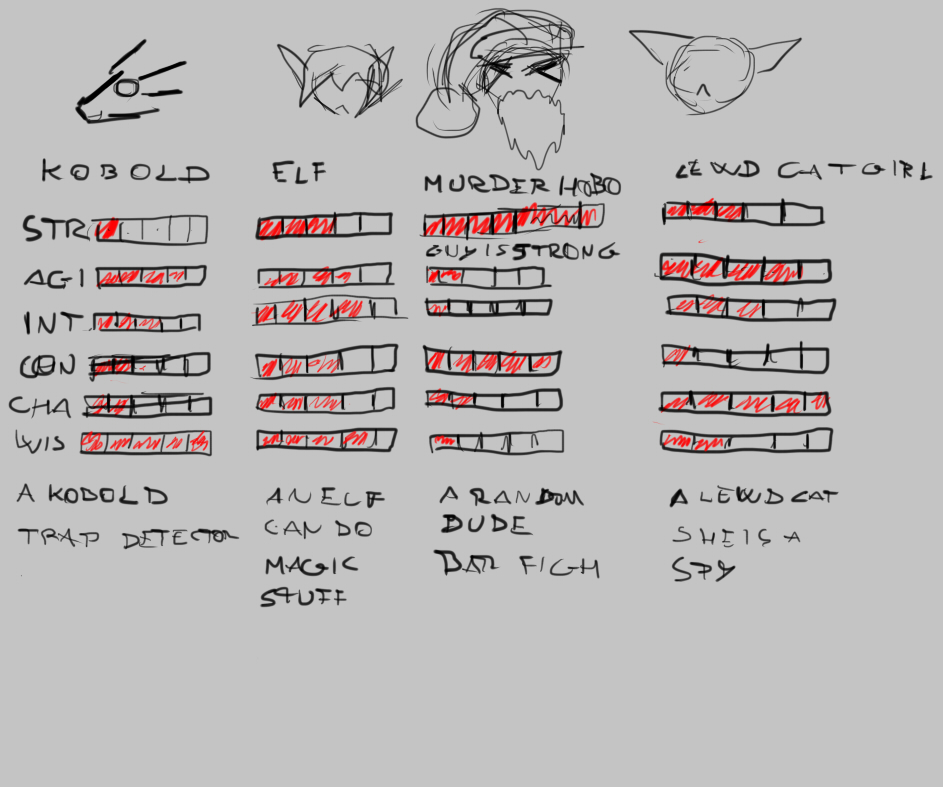 KOBOLD
ELF
MURDER HOBO
LEWD CATGIRL
STR
GUY IS STRONG
AGI
INT
CON
CHA
WIS
A KOBOLD
TRAP DETECTOR
AN ELF
CAN DO
MAGIC
STUFF
A RANDOM
DUDE
BAR FIGH
A LEWD CAT
SHE IS A
SPY